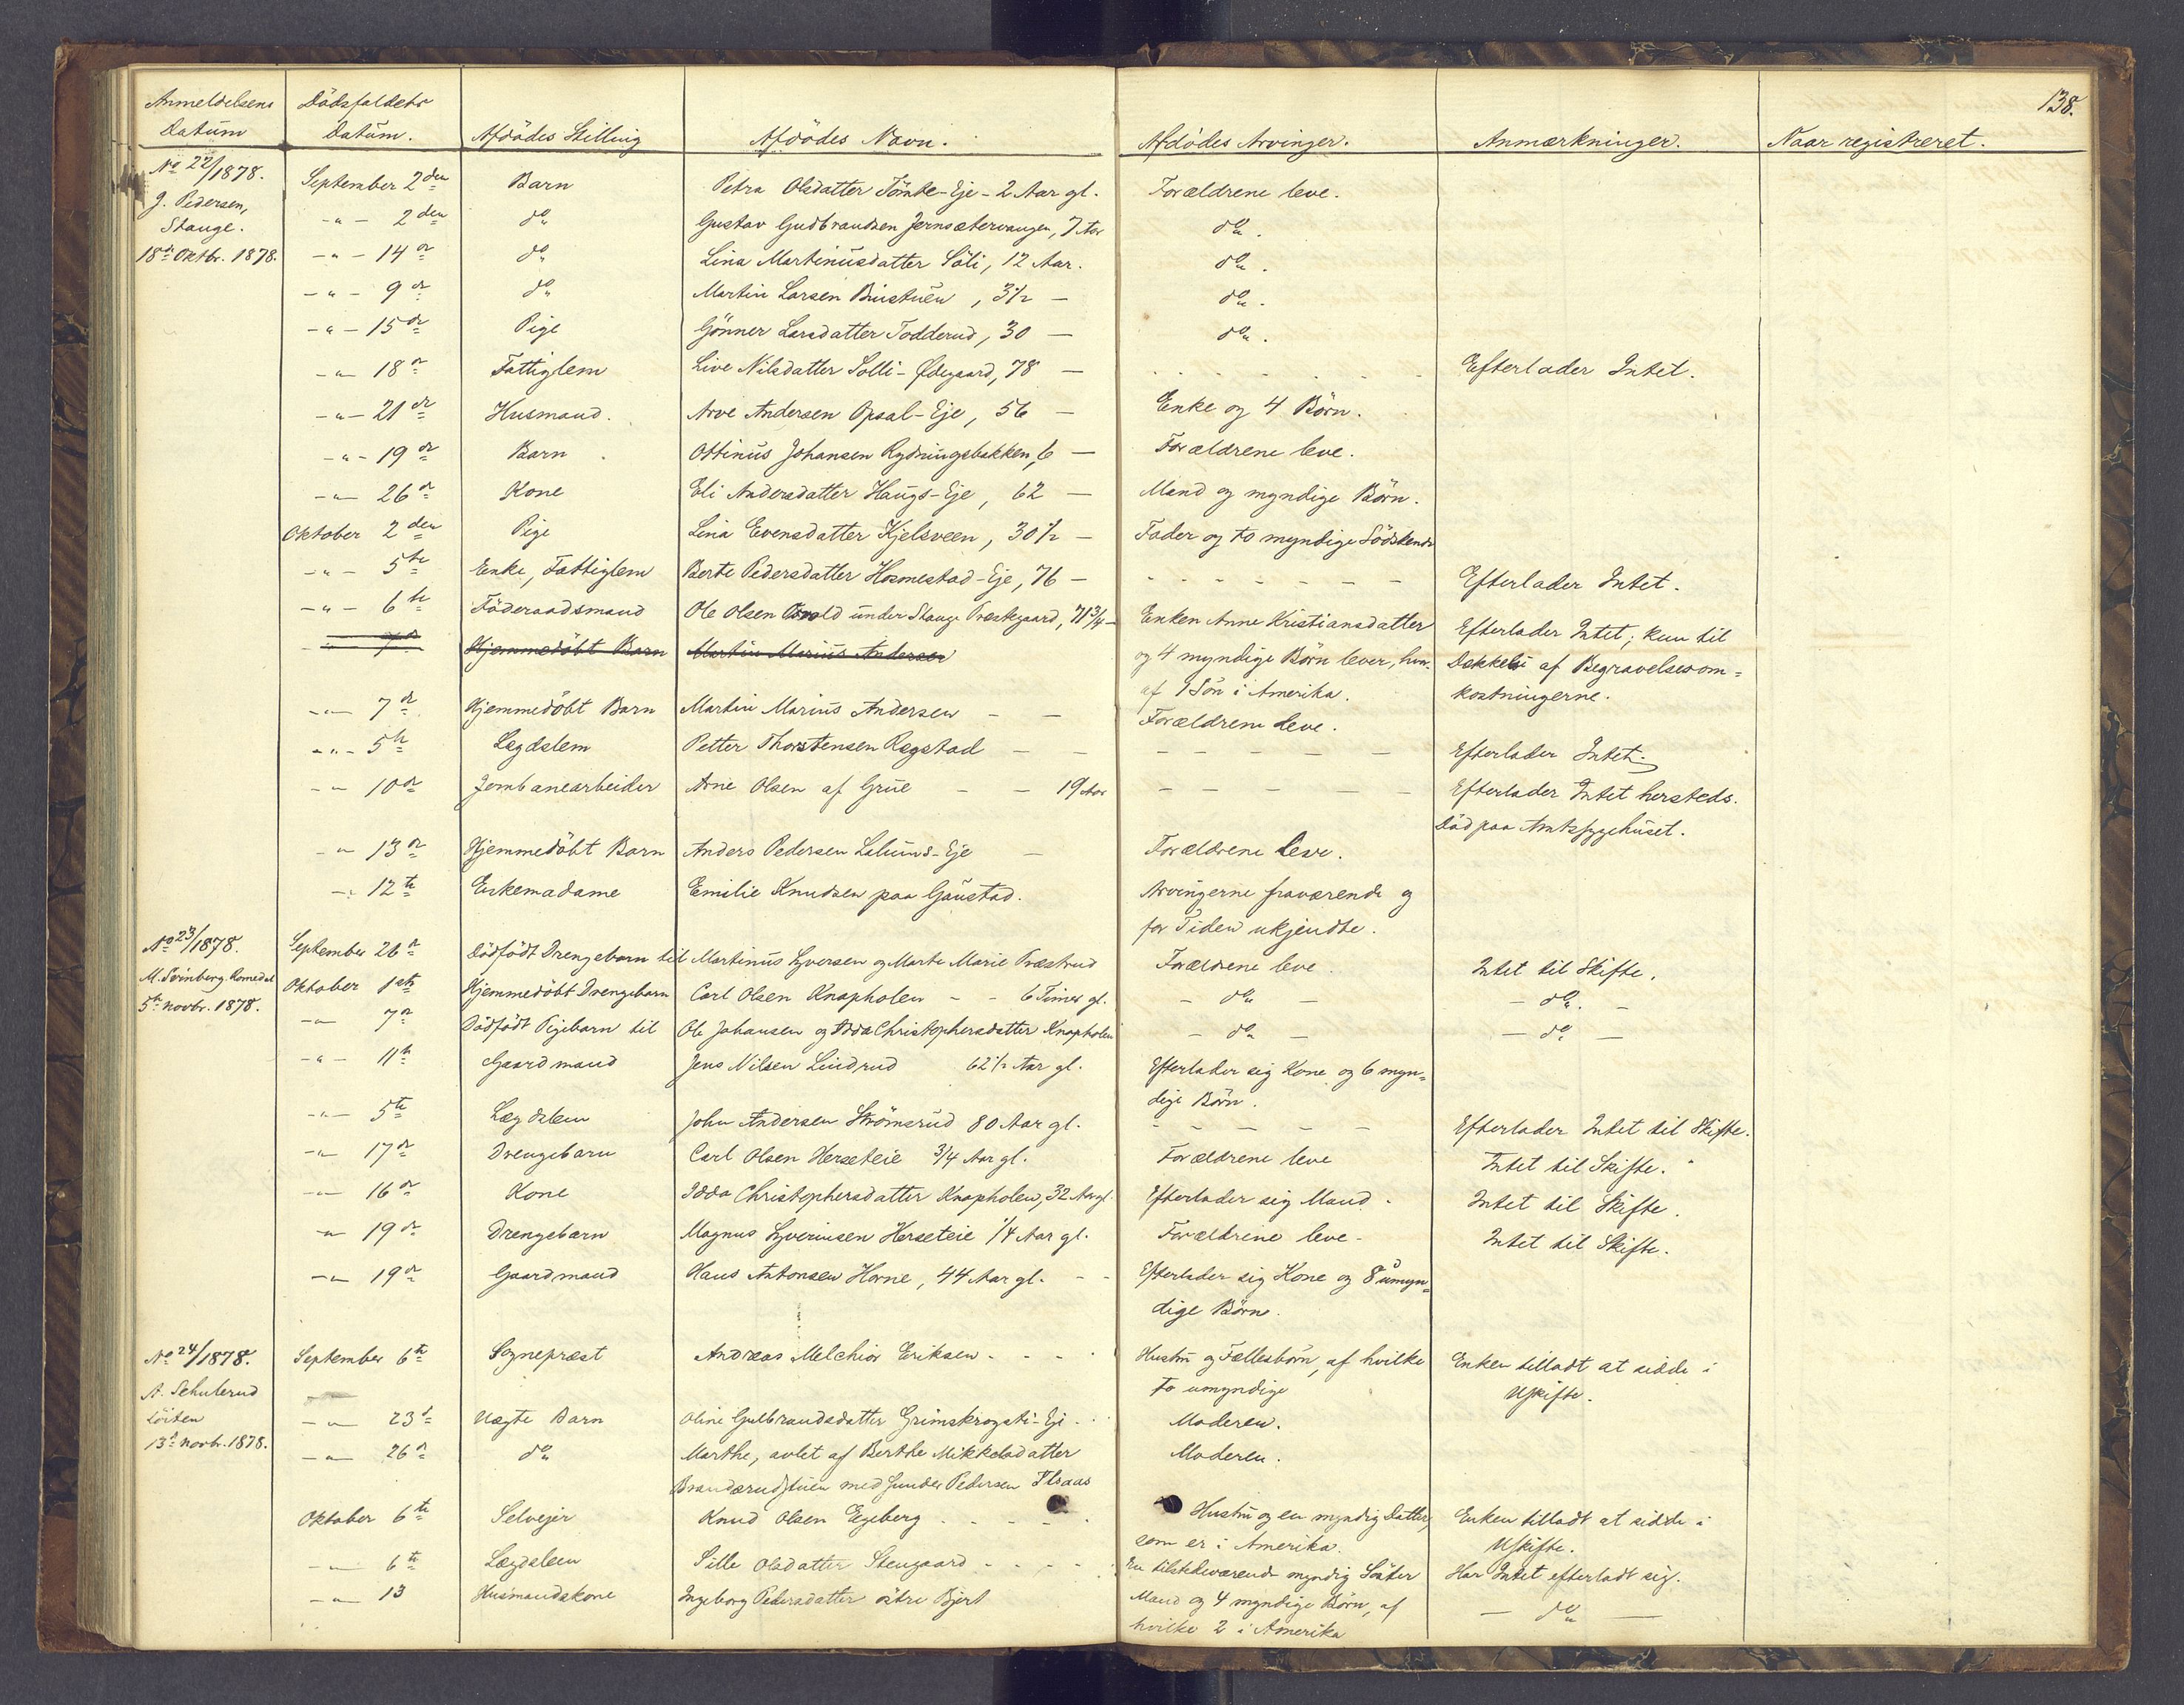 138.
Anmeldelsens Datum Dödsfaldets Datum. Afdödes Stilling Afdödes Navn. Afdödes Arvinger. Anmærkninger. Naar registreret.
No 22/1878. September 2den Barn Petra Olsdatter Tomte-Eje - 2 Aar gl. Forældrene leve.
J. Pedersen, -"- 2den do Gustav Gudbrandsen Jernsætervangen, 7 Aar do.
Stange. 18de Oktbr. 1878. -"- 14de do Lina Martinusdatter Söli, 12 Aar. do.
-"- 9de do Martin Larsen Bustuen, 3 1/2 - do.
-"- 15de Pige Gönner Larsdatter Todderud, 30 - do.
-"- 18de Fattiglem Live Nilsdatter Solli-Ødegaard, 78 - Efterlader Intet.
-"- 21de Husmand. Arve Andersen Opsal-Eje, 56 - Enke og 4 Börn.
-"- 19de Barn Ottinus Johansen Rydningsbakken, 6 - Forældrene leve.
-"- 26de Kone Eli Andersdatter Haugs-Eje, 62 - Mand og myndige Börn.
Oktober 2den Pige Lina Evensdatter Kjelsveen, 30 1/2 - Fader og to myndige Södskende
-"- 5te Enke, Fattiglem Berte Pedersdatter Hosmestad-Eje, 76 - Efterlader Intet.
-"- 6te Föderaadsmand Ole Olsen under Stange Præstegaard, 71 3/4 - Enken Anne Kristiansdatter Efterlader Intet; kun til
-"- 7de Hjemmedöbt Barn Martin Marius Andersen og 4 myndige Börn lever, hvor- Dækkelse af Begravelsesom-
af 1 Sön i Amerika. kostningerne.
-"- 7de Hjemmedöbt Barn Martin Marius Andersen - - Forældrene leve.
-"- 5te Lægdslem Petter Thorstensen Rogstad - - Efterlader Intet.
-"- 10de Jernbanearbeider Arne Olsen af Grue - - 19 Aar Efterlader Intet hersteds.
Död paa Amtssygehuset.
-"- 13de Hjemmedöbt Barn Anders Pedersen Lalums-Eje - Forældrene leve.
-"- 12te Enkemadame Emilie Knudsen paa Gaustad. Arvingerne fraværende og
for Tiden ukjendte.
No 23/1878. September 26de Dödfödt Drengebarn til Martinus Syversen og Marte Marie Præstrud Forældrene leve. Intet til Skifte.
M. Svinberg, Romedal Oktober 1ste Hjemmedöbt Drengebarn Carl Olsen Knapholen - - 6 Timer gl. - do - - do. -
5te novbr. 1878. -"- 7de Dödfödt Pigebarn til Ole Johansen og Idda Christophersdatter Knapholen - do - - do -
-"- 11te Gaardmand Jens Nilsen Lindrud 62 1/2 Aar gl. Efterlader sig Kone og 6 myn-
dige Börn.
-"- 5te Lægdslem John Andersen Strömsrud 80 Aar gl. Efterlader Intet til Skifte.
-"- 17de Drengebarn Carl Olsen Herseteie 3/4 Aar gl. Forældrene leve Intet til Skifte.
-"- 16de Kone Idda Christophersdatter Knapholen, 32 Aar gl. Efterlader sig Mand. Intet til Skifte.
-"- 19de Drengebarn Magnus Syverinsen Herseteie 1/4 Aar gl. Forældrene leve - Intet til Skifte.
-"- 19de Gaardmand Hans Antonsen Horne, 44 Aar gl. - - Efterlader sig Kone og 8 umyn-
dige Börn.
No 24/1878. September 6te Sognepræst Andreas Melchior Eriksen - - - Hustru og Fællesbörn, af hvilke Enken tilladt at sidde i
A. Schulerud to umyndige Uskifte.
Löiten -"- 23de Uægte Barn Oline Gulbrandsdatter Grimskrogsti-Eje - Moderen.
13de novbr. 1878. -"- 26de do Marthe, avlet af Berthe Mikkelsdatter Moderen.
Brandsrudstuen med Gunder Pedersen
Oktober 6te Selvejer Knud Olsen Egeberg - - - Hustru og en myndig Datter, Enken tilladt at sidde i
som er i Amerika. Uskifte.
-"- 6te Lægdslem Sille Olsdatter Stengaard - - - En tilstedeværende myndig Söster Har Intet efterladt sig.
-"- 13 Husmandskone Ingeborg Pedersdatter östre Bjert Mand og 4 myndige Börn, af - do -
hvilke 2 i Amerika